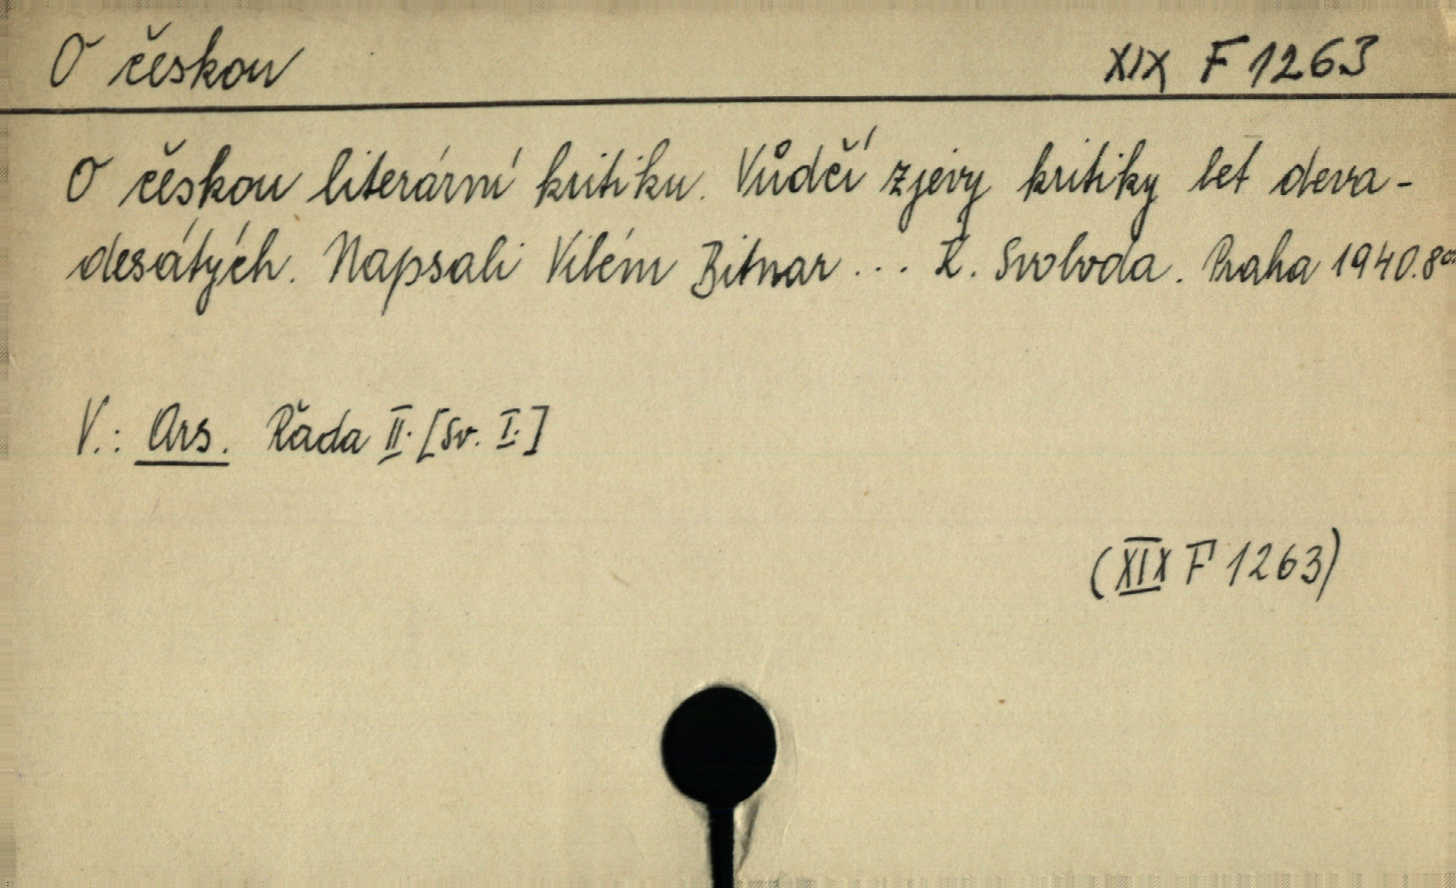 O českou XIX F 1263
O českou literární kritiku. Vůdčí zjevy kritiky let deva-
desátých. Napsali Vilém Bitnar ... K. Svoboda. Praha 1940. 8°
V.: Ars. Řada II. [Sv. I.]
(XIX F 1263)